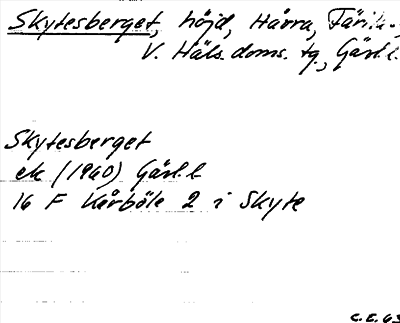 Skytesberget, höjd, Hårra, Färila,
V. Häls. doms. tg., Gävl. l.
Skytesberget
ek (1960) Gävl. l
16 F Kårböle 2 i Skyte
C.E. 63